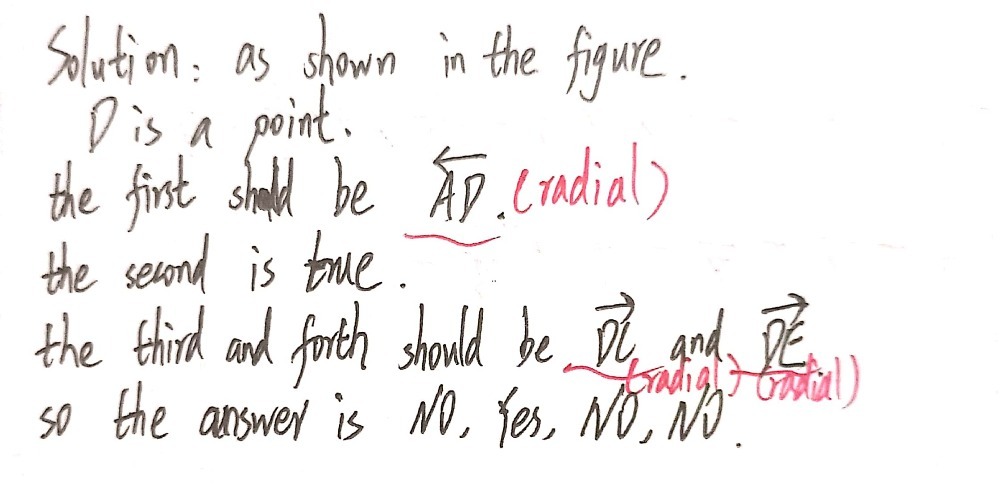 Solution: as shown in the figure.
D is a point.
the first should be AD. (radial)
the second is true.
the third and forth should be DC and DE
(radial) (radial)
so the answer is NO, Yes, NO, NO.